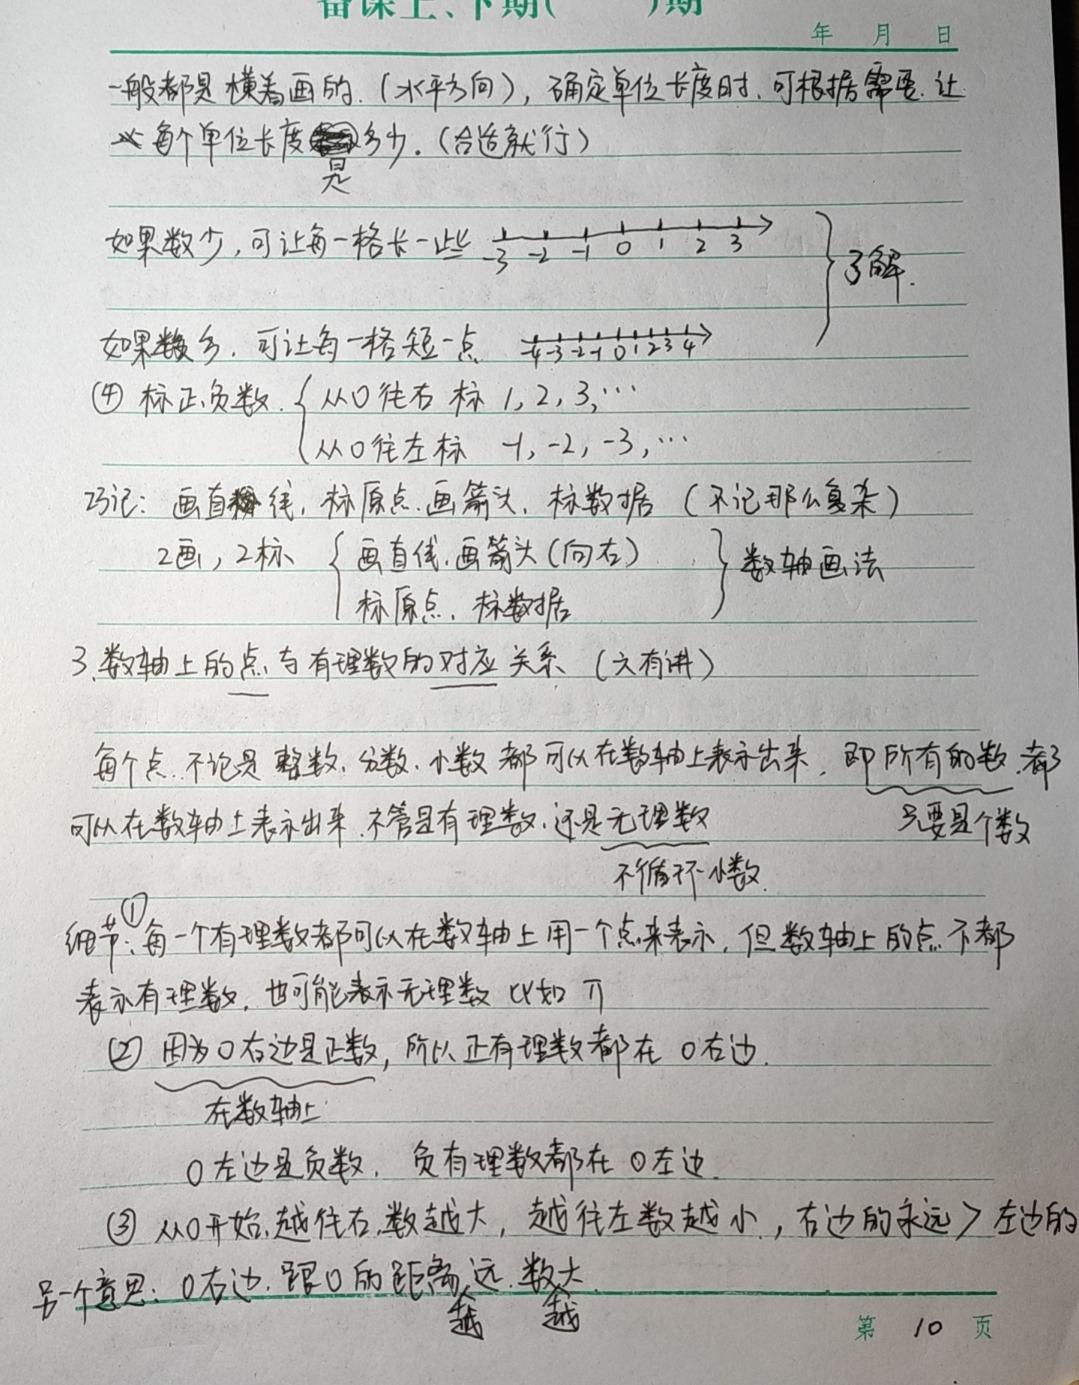 备课上、下期( )期
年 月 日
一般都是横着画的.(水平方向),确定单位长度时.可根据需要.让
每个单位长度是多少.(合适就行)
如果数少,可让每一格长一些 -3 -2 -1 0 1 2 3
了解.
如果数多.可让每一格短一点 -4 -3 -2 -1 0 1 2 3 4
④ 标正.负数. 从0往右标 1,2,3,…
从0往左标 -1,-2,-3,…
巧记: 画直线,标原点.画箭头,标数据(不记那么复杂)
2画,2标 画直线.画箭头(向右) 数轴画法
标原点.标数据
3.数轴上的点与有理数的对应关系(六有讲)
每个点.不论是整数.分数.小数都可以在数轴上表示出来,即所有的数.都
可以在数轴上表示出来.不管是有理数.还是无理数 只要是个数
不循环小数.
细节:①每一个有理数都可以在数轴上用一个点来表示,但数轴上的点不都
表示有理数,也可能表示无理数比如π
② 因为0右边是正数,所以正有理数都在0右边.
在数轴上
0左边是负数.负有理数都在0左边.
③ 从0开始.越往右.数越大,越往左数越小,右边的永远>左边的
另一个意思:0右边.跟0的距离越远.数越大.
第 10 页